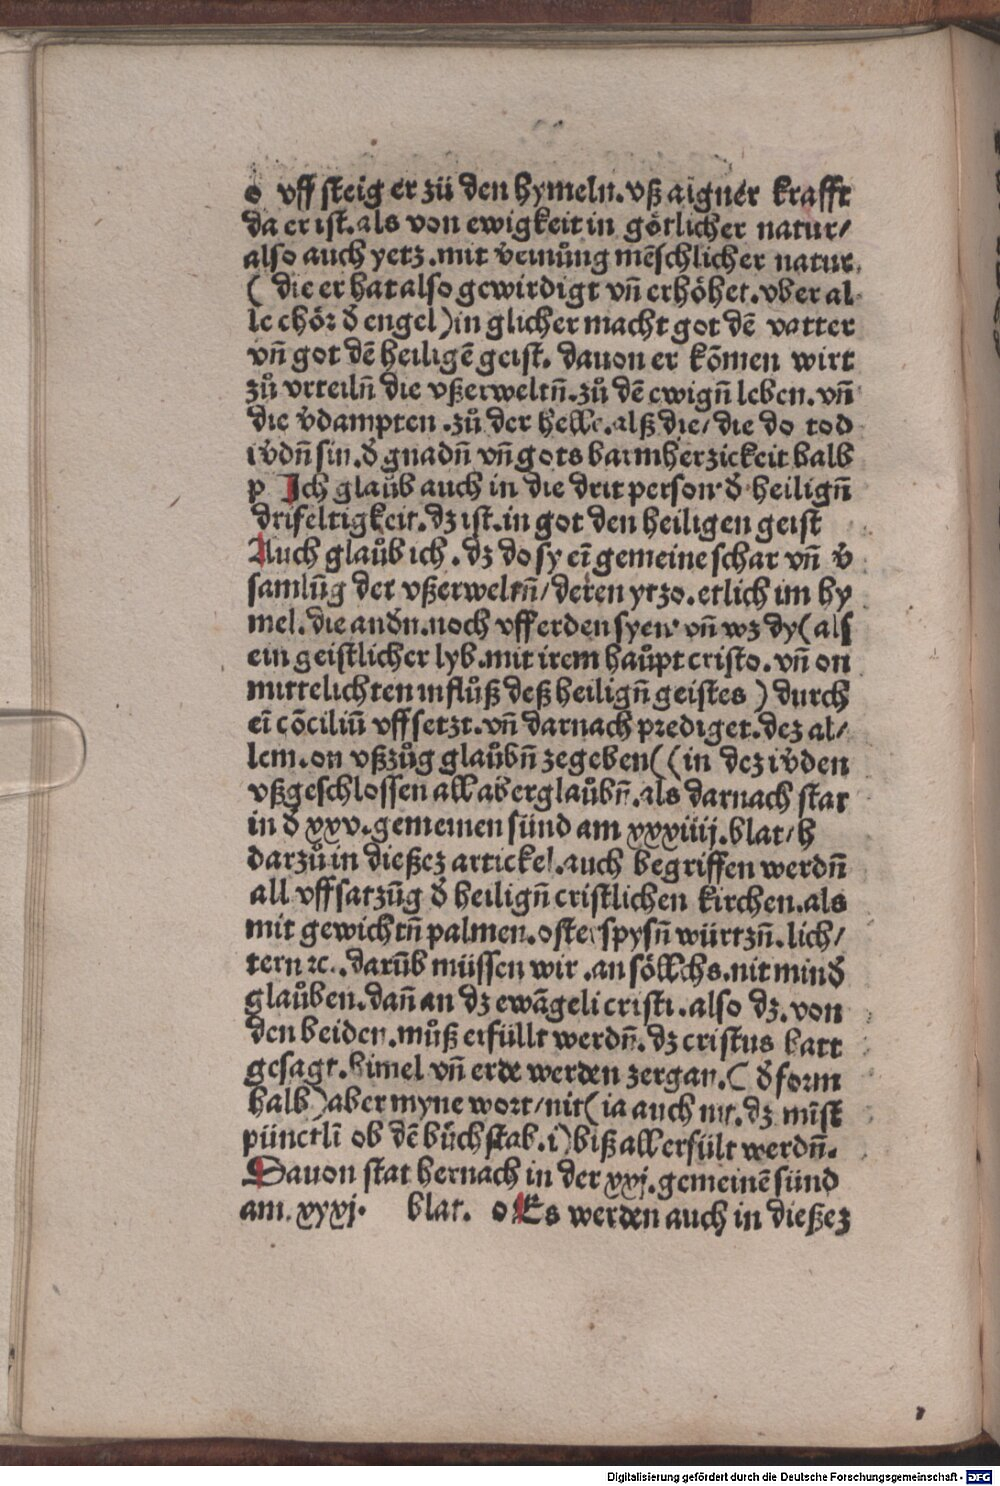 o uff steig er zü den hymeln. uß aigner krafft
da er ist. als von ewigkeit in götlicher natur/
also auch yetz. mit v̄einůng mēschlicher natur.
( die er hat also gewirdigt vn̄ erhöhet. vber al-
le chör đ engel) in glicher macht got dē vatter
vn̄ got dē heiligē geist. dauon er kōmen wirt
zů vrteiln̄ die vßerweltn̄. zů dē ewign̄ leben. vn̄
die v̄dampten. zů der helle. alß die/ die do tod
iv̄dn̄ sin. đ gnadn̄ vn̄ gots barmherzickeit halb
p Ich glaůb auch in die drit person đ heilign̄
drifeltigkeit. dz ist. in got den heiligen geist
Auch glaůb ich. dz do sy eī gemeine schar vn̄ v̄
samlūg der vßerweltn̄/ deren ytzo. etlich im hy
mel. die andn̄. noch vff erden syen vn̄ wz dy (als
ein geistlicher lyb. mit irem haůpt cristo. vn̄ on
mittelichten influß deß heilign̄ geistes ) durch
eī cōciliū vffsetzt. vn̄ darnach prediget. dez al/
lem. on vßzůg glaůbn̄ zegeben ( (in dez iv̄den
vßgeschlossen all aberglaůbn̄. als darnach stat
in đ xxv. gemeinen sünd am xxxiiij. blat/ h
darzů in dießez artickel. auch begriffen werdn̄
all vffsatzūg đ heilign̄ cristlichen kirchen. als
mit gewichtn̄ palmen. osterspysn̄ würtzn̄. lich/
tern ꝛc. . darūb müssen wir. an söllchs. nit minđ
glaůben. dan̄ an dz ewāgeli cristi. also dz. von
den beiden. můß erfüllt werdn̄. dz cristus hatt
gesagt. himel vn̄ erde werden zergan. ( đ form
halb) aber myne wort/ nit ( ia auch nit. dz mīst
pünctlī ob dē bůchstab. i) biß all erfült werdn̄.
Dauon stat hernach in der xxj. gemeinē sünd
am. xxxj. blat. o Es werden auch in dießez
Digitalisierung gefördert durch die Deutsche Forschungsgemeinschaft - DFG